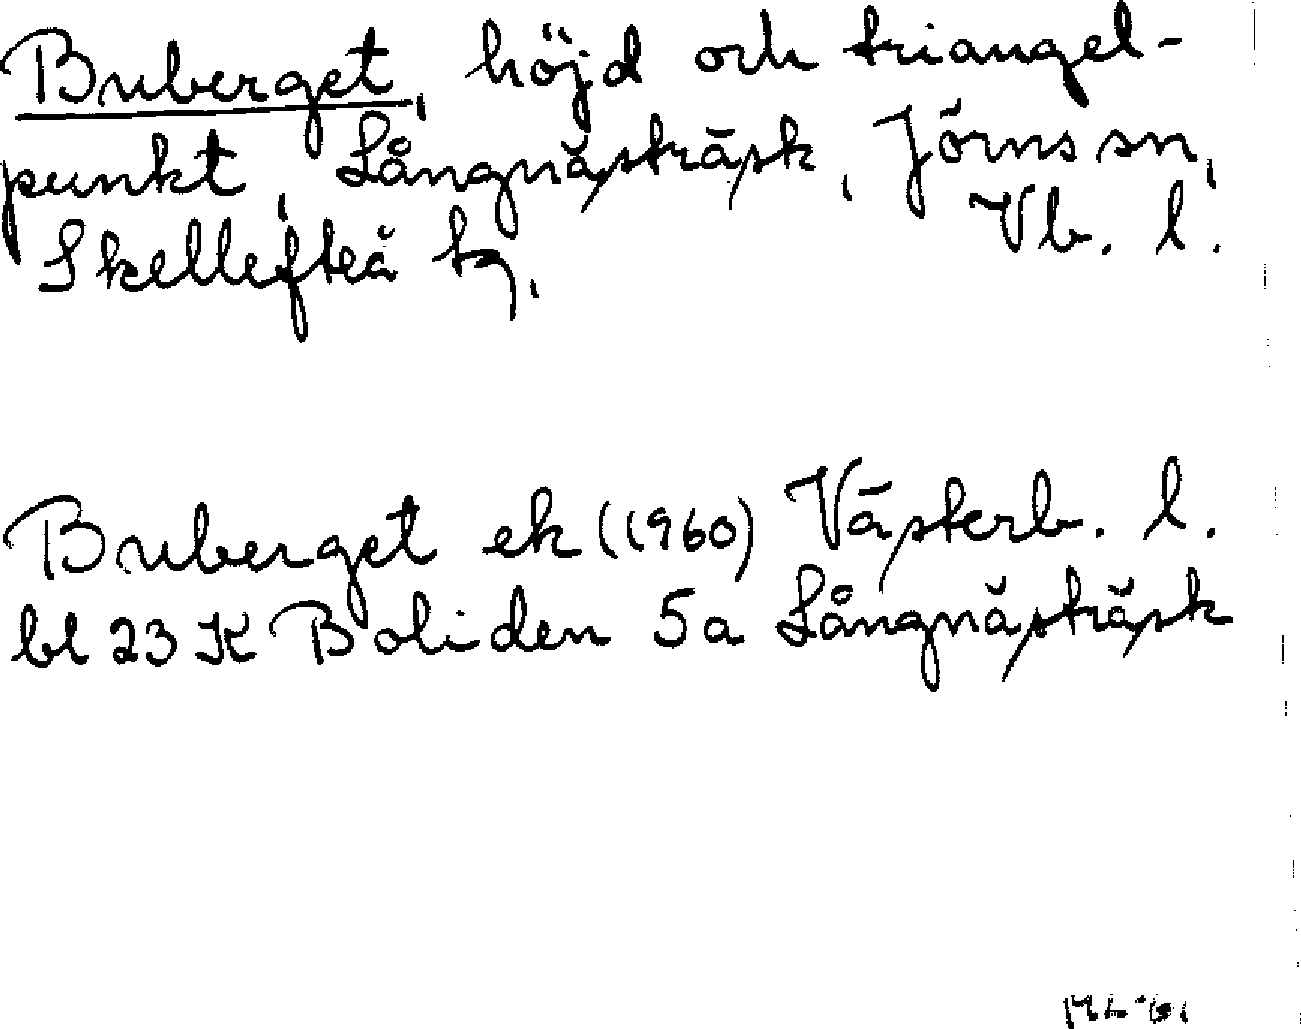 Buberget, höjd och triangel-
punkt, Långnästräsk, Jörns sn,
Skellefteå tg, Vb. l.
Buberget ek (1960) Västerb. l.
bl 23 K Boliden 5a Långnästräsk